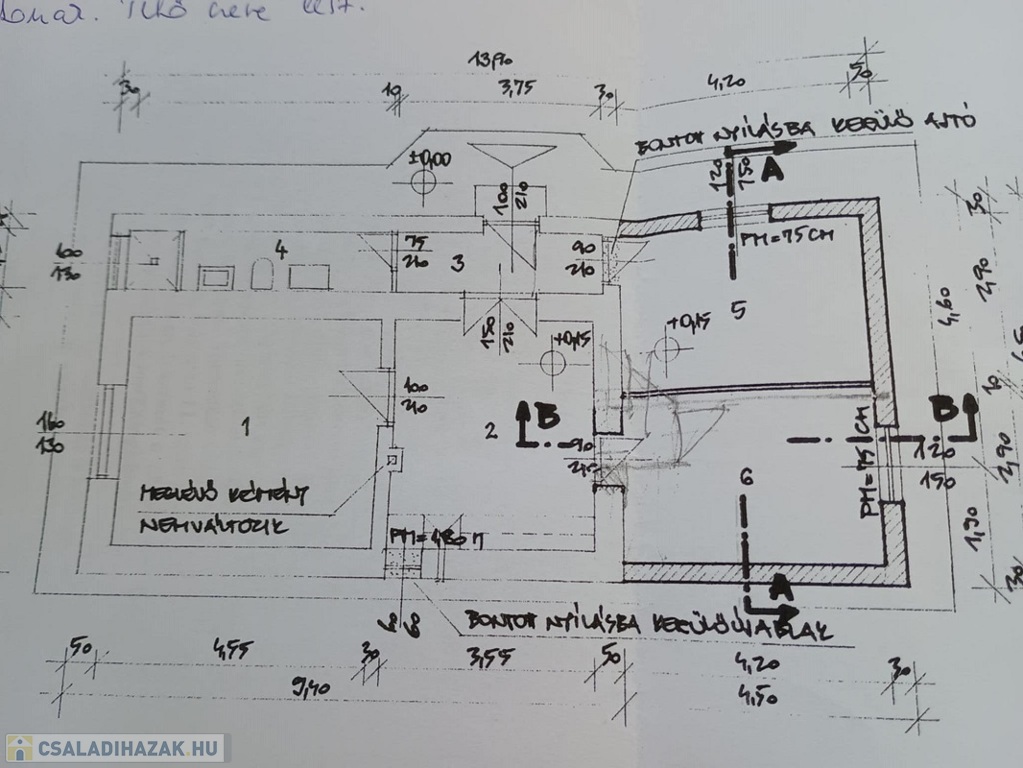 13,90
30
10
3,75
30
4,20
50
BONTOTT NYÍLÁSBA KERÜLŐ AJTÓ
±0,00
120
150
A
100
210
30
100
130
4
75
210
3
90
210
PM=75 CM
2,90
4,60
5
+0,15
+0,15
150
210
10
160
130
1
100
210
2
B
90
210
B
120
150
PM=75 CM
2,90
6
MEGLÉVŐ KÉMÉNY
NEM VÁLTOZIK
PM=1,80 M
1,90
30
A
60
60
BONTOTT NYÍLÁSBA KERÜLŐ ÚJ ABLAK
50
4,55
30
3,55
50
4,20
30
9,40
4,50
CSALADIHAZAK.HU